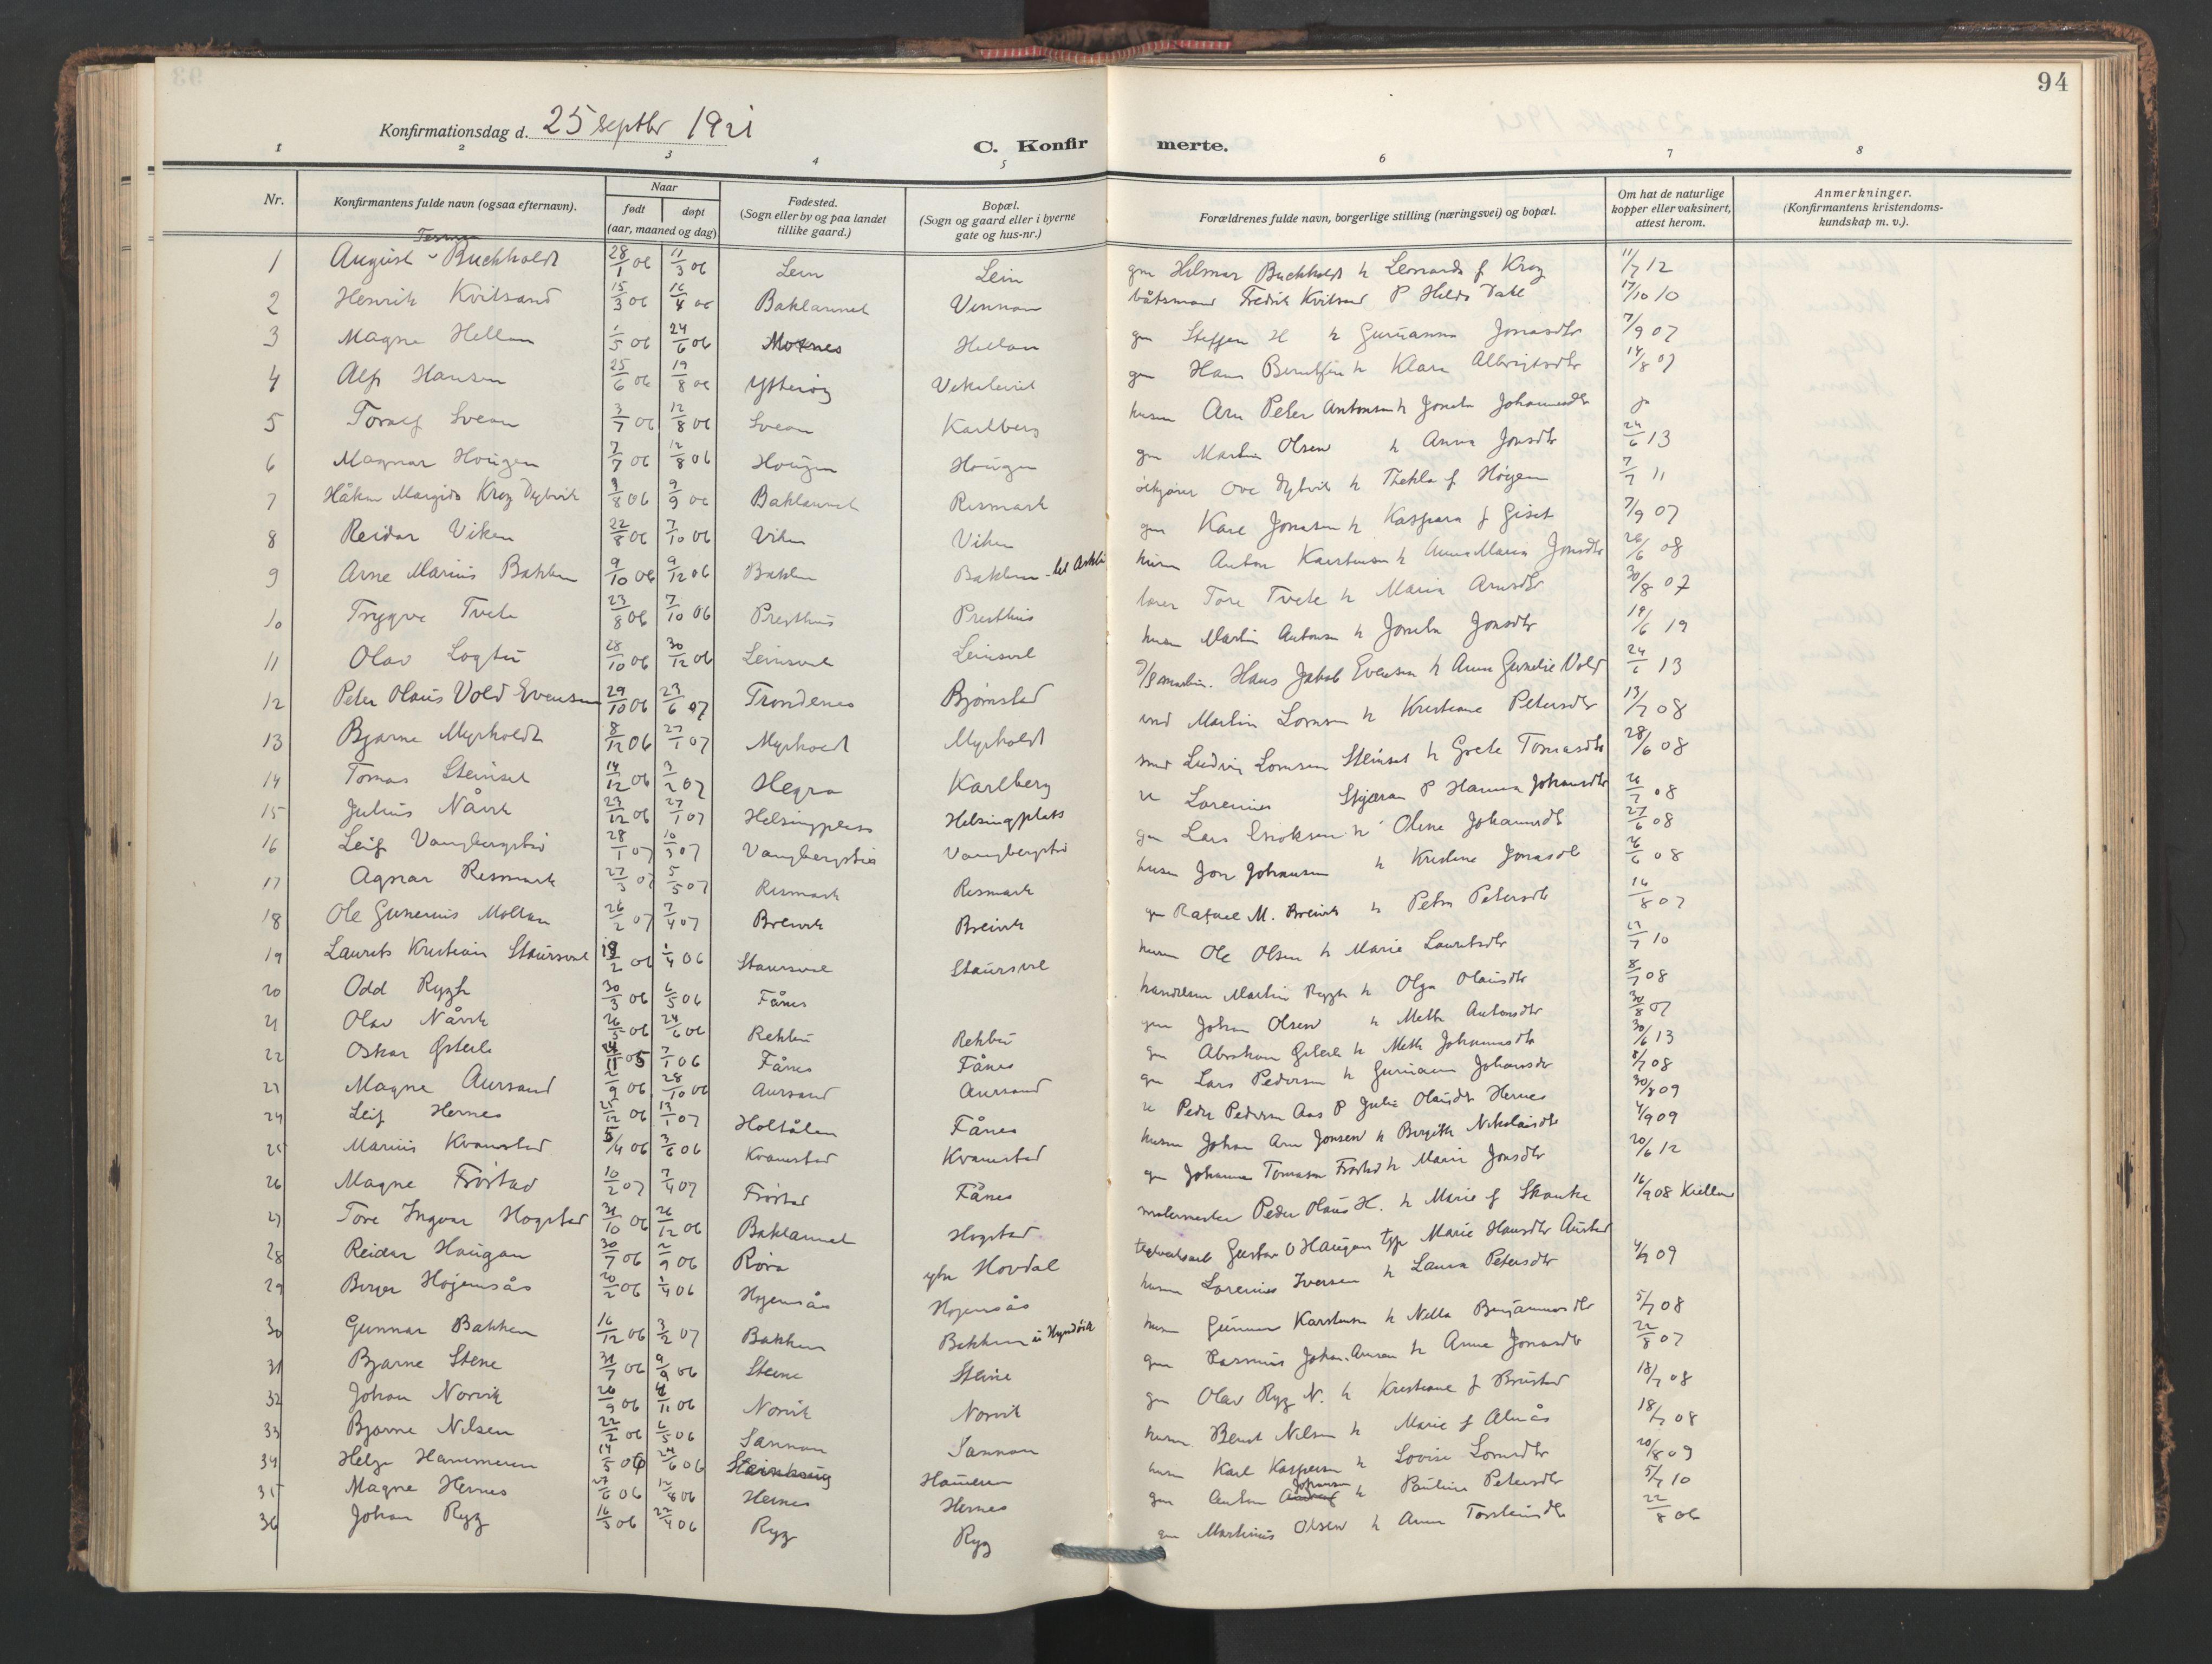 94
Konfirmationsdag d. 25 septbr 1921
C. Konfirmerte.
1 2 3 4 5 6 7 8
Nr. | Konfirmantens fulde navn (ogsaa efternavn). | Naar født døpt (aar, maaned og dag) | Fødested. (Sogn eller by og paa landet tillike gaard.) | Bopæl. (Sogn og gaard eller i byerne gate og hus-nr.) | Forældrenes fulde navn, borgerlige stilling (næringsvei) og bopæl. | Om hat de naturlige kopper eller vaksinert, attest herom. | Anmerkninger. (Konfirmantens kristendomskundskap m. v.).
1 August Buchholdt 28/1 06 11/3 06 Lein Lein gm Hilmar Buchholdt h Leonarda f Kreg 11/7 12
2 Henrik Kvitsand 15/3 06 16/4 06 Baklannet Vinnan båtsmand Fredrik Kvitsand P Hilda Dahl 17/10 10
3 Magne Hellan 1/5 06 24/6 06 Mosnes Hellan gm Steffen H h Gurianna Jonasdtr 7/9 07
4 Alf Hansen 25/6 06 19/8 06 Ytterøy gm Hans Berntsen h Klara Albrigtsdtr 14/8 07
5 Toralf Svean 3/7 06 12/8 06 Svean Karlberg husm Arn Peter Antonsen h Jonetta Johannesdtr ja
6 Magnar Hougen 7/7 06 12/8 06 Hougen Hougen gm Martin Olsen h Anna Jonsdtr 24/6 13
7 Håkon Margido Kreg Dybvik 9/8 06 9/9 06 Baklannet Rismark Ove Dybvik h Thekla f Høgem 7/7 11
8 Reidar Viken 22/8 06 7/10 06 Viken Viken gm Karl Jonasen h Kaspara f Giset 7/9 07
9 Arne Marius Bakken 9/10 06 9/12 06 Bakken Bakken husm Anton Karstensen h Anna Maria Jonsdtr 26/6 08
10 Trygve Tvete 23/8 06 7/10 06 Presthus Presthus lærer Tore Tvete h Maria Arnsdtr 30/8 07
11 Olav Logtu 28/10 06 30/12 06 Leinsvel Leinsvel husm Martin Antonsen h Jonetta Jonsdtr 19/6 19
12 Peter Olaus Vold Evensen 29/10 06 23/6 07 Trondenes Bjørnstad Hans Jakob Evensen h Anna Gunelie Vold 24/6 13
13 Bjarne Myrholdt 8/12 06 27/1 07 Myrholdt Myrholdt ind Martin Lornsen h Kristiane Petersdtr 13/7 08
14 Tomas Steinset 14/12 06 3/2 07 Hegra Karlberg smed Ludvig Lornsen Steinset h Grete Tomasdtr 28/6 08
15 Julius Nåvik 23/12 06 27/1 07 Helsingplass Helsingplass u Lorenius Stjøran P Hanna Johansdtr 26/7 08
16 Leif Vangbergstrø 28/1 07 10/3 07 Vangbergstrø Vangbergstrø gm Lars Eriksen h Oline Johannesdtr 27/6 08
17 Agnar Rismark 27/3 07 5/5 07 Rismark Rismark husm Jon Johansen h Kristine Jonasdtr 26/6 08
18 Ole Gunerius Moltan 26/2 07 7/4 07 Breivik Breivik gm Rafael M. Breivik h Petra Petersdtr 16/8 07
19 Laurits Kristian Staursvel 18/2 06 1/4 06 Staursvel Staursvel husm Ole Olsen h Marie Lauritsdtr 17/7 10
20 Odd Rygh 30/3 06 6/5 06 Fånes handelsm Martin Rygh h Olga Olausdtr 8/7 08
21 Olav Nåvik 26/5 06 24/6 06 Rekbu Rekbu gm Johan Olsen h Mette Antonsdtr 30/8 07
22 Oskar Østerli 24/11 05 7/1 06 Fånes Fånes gm Abraham Østerli h Mette Johannesdtr 30/6 13
23 Magne Aursand 2/9 06 28/10 06 Aursand Aursand gm Lars Pedersen h Gurianna Johansdtr 8/7 08
24 Leif Hernes 25/12 06 13/1 07 Holtålen Fånes u Peder Pedersen Aas P Julie Olausdtr Hernes 30/8 09
25 Marius Kvamstad 5/4 06 3/6 06 Kvamstad Kvamstad husm Johan Arn Jonsen h Birgitte Nikolaisdtr 4/9 09
26 Magne Frøstad 10/2 07 7/4 07 Frøstad Fånes gm Johannes Tomasen Frøstad h Marie Jonsdtr 20/6 12
27 Tore Ingvar Hogstad 31/10 06 26/12 06 Baklannet Hogstad malermester Peder Olaus H. h Marie f Skanke 16/9 08
28 Reidar Haugan 30/7 06 2/9 06 Røra ytre Hovdal Gustav O Haugan Marie Hansdtr Austad
29 Birger Hojemsås 20/2 06 1/4 06 Hojemsås Hojemsås husm Lorenius Iversen h Laura Petersdtr 4/9 09
30 Gunnar Bakken 16/12 06 3/2 07 Bakken Bakken husm Gunnar Karstensen h Nella Benjaminsdtr 5/7 08
31 Bjarne Stene 31/7 06 9/9 06 Steine Steine gm Rasmus Johan Arnsen h Anne Jonasdtr 22/8 07
32 Johan Norvik 26/9 06 4/11 06 Norvik Norvik gm Olav Ryg N. h Kristiane f Brustad 18/7 08
33 Bjarne Nilsen 22/2 06 6/5 06 Sannan Sannan husm Bernt Nilsen h Marie f Almås 18/7 08
34 Helge Hammeren 14/5 06 24/6 06 Steinhaug Hameren husm Karl Kaspersen h Lovise Lornsdtr 20/8 09
35 Magne Hernes 27/6 06 12/8 06 Hernes Hernes gm Anton Johansen h Pauline Petersdtr 5/7 10
36 Johan Ryg 16/3 06 22/4 06 Ryg Ryg gm Martinus Olsen h Anna Torsteinsdtr 22/8 06